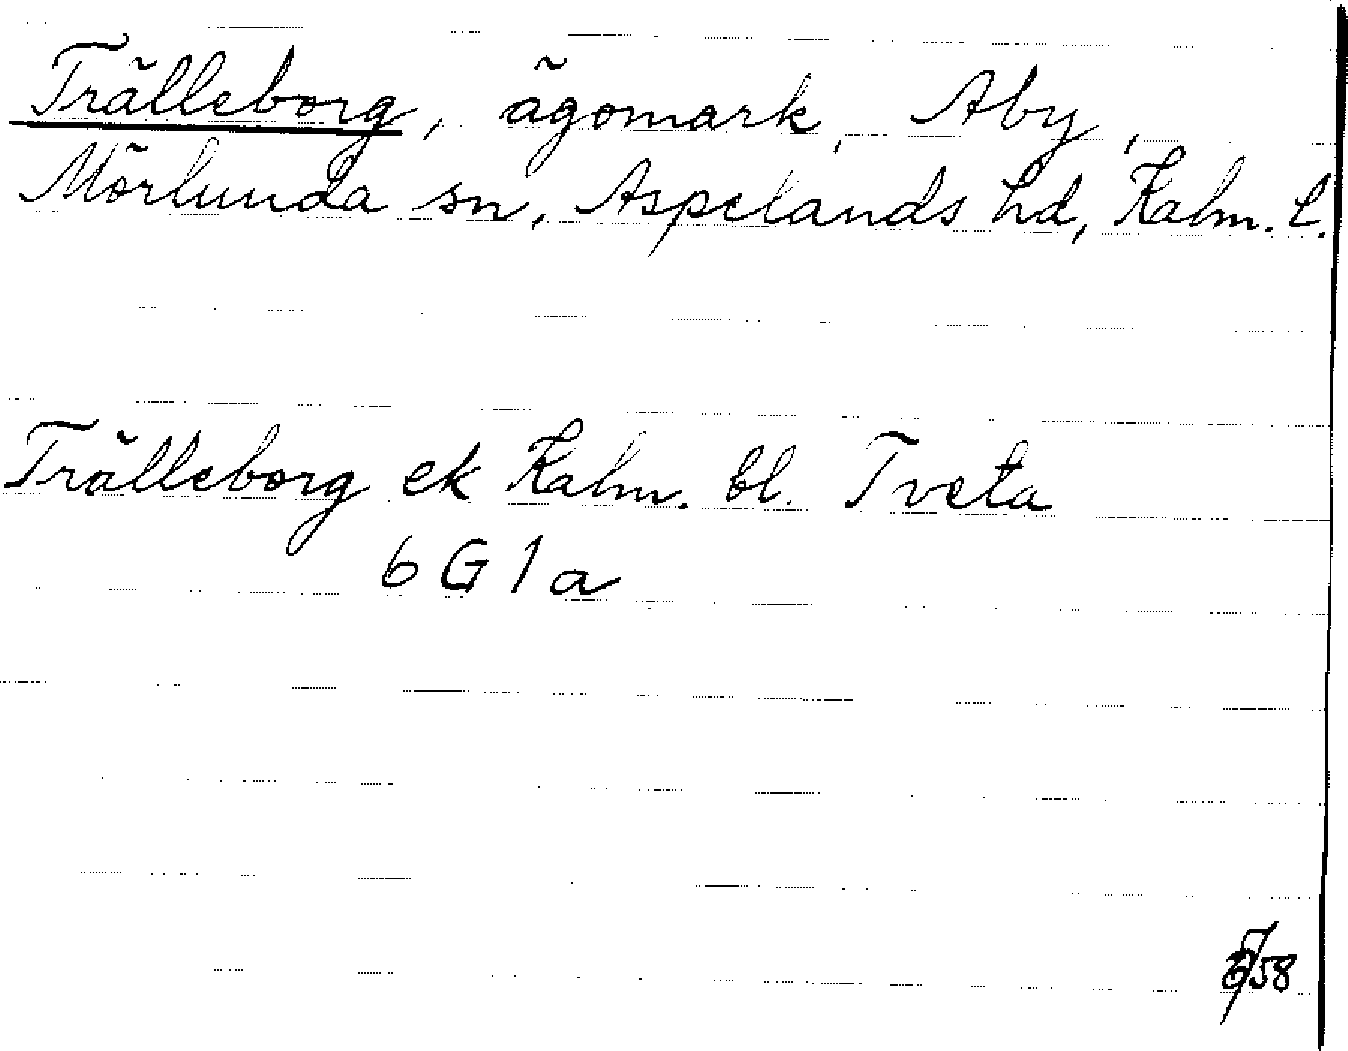 Trälleborg, ägomark, Aby,
Mörlunda sn, Aspelands hd, Kalm. l.
Trälleborg ek Kalm. bl. Tveta
6 G 1 a